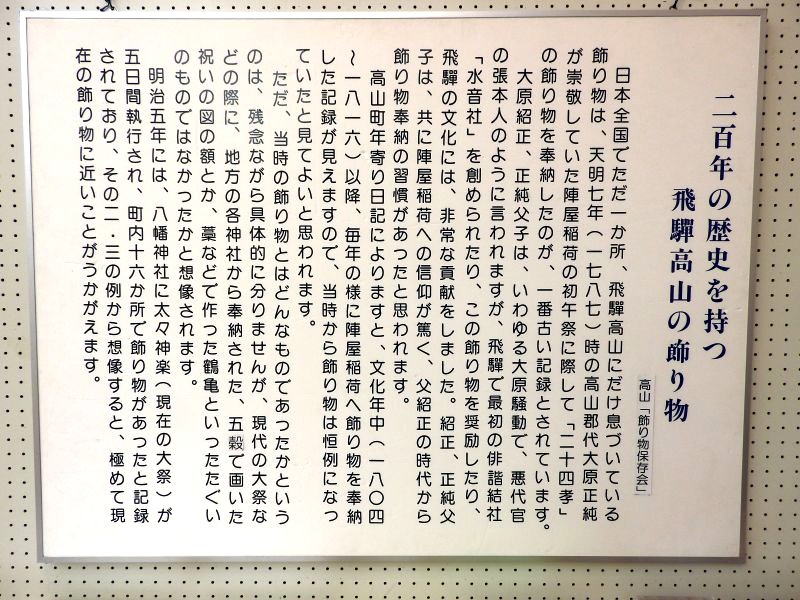 二百年の歴史を持つ
飛驒高山の飾り物
高山「飾り物保存会」
日本全国でただ一か所、飛驒高山にだけ息づいている
飾り物は、天明七年（一七八七）時の高山郡代大原正純
が崇敬していた陣屋稲荷の初午祭に際して「二十四孝」
の飾り物を奉納したのが、一番古い記録とされています。
大原紹正、正純父子は、いわゆる大原騒動で、悪代官
の張本人のように言われますが、飛驒で最初の俳諧結社
「水音社」を創められたり、この飾り物を奨励したり、
飛驒の文化には、非常な貢献をしました。紹正、正純父
子は、共に陣屋稲荷への信仰が篤く、父紹正の時代から
飾り物奉納の習慣があったと思われます。
高山町年寄り日記によりますと、文化年中（一八〇四
〜一八一六）以降、毎年の様に陣屋稲荷へ飾り物を奉納
した記録が見えますので、当時から飾り物は恒例になっ
ていたと見てよいと思われます。
ただ、当時の飾り物とはどんなものであったかという
のは、残念ながら具体的に分りませんが、現代の大祭な
どの際に、地方の各神社から奉納された、五穀で画いた
祝いの図の額とか、藁などで作った鶴亀といったたぐい
のものではなかったかと想像されます。
明治五年には、八幡神社に太々神楽（現在の大祭）が
五日間執行され、町内十六か所で飾り物があったと記録
されており、その二・三の例から想像すると、極めて現
在の飾り物に近いことがうかがえます。